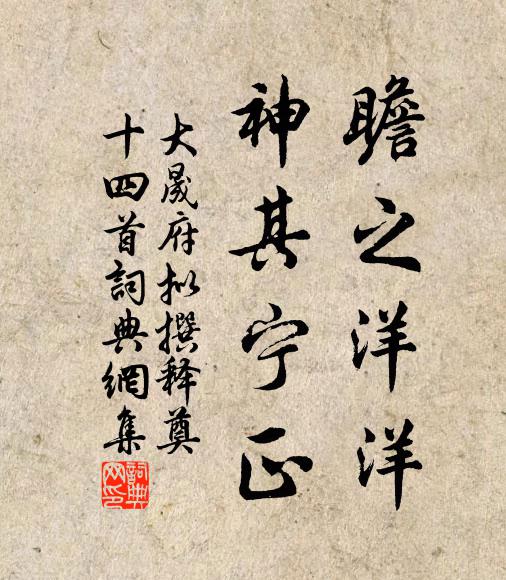 瞻之洋洋
神其宁止
大晟府拟撰释奠
十四首詞典網集
詞典
网印